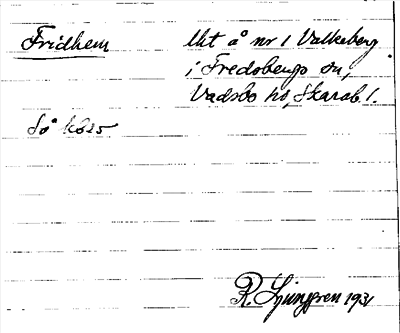 Fridhem
Uit å nr 1 Valkeberg
i Fredsbergs sn,
Vadsbo hd, Skarab. l.
Så kbs
R. Ljunggren 1931